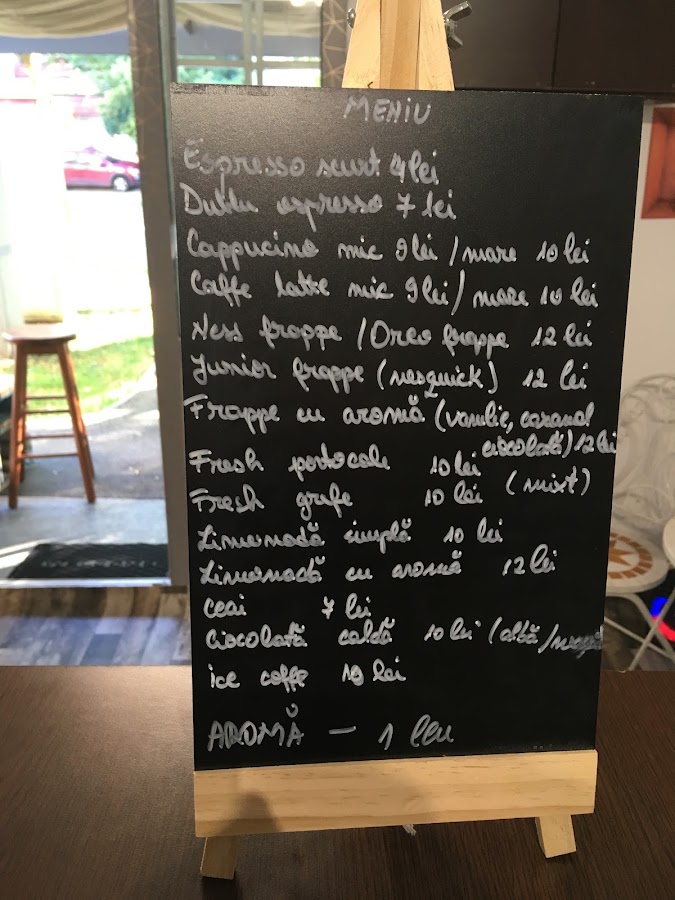 MENIU
Espresso scurt 4 lei
Dublu espresso 7 lei
Cappucino mic 9 lei / mare 10 lei
Caffe latte mic 9 lei / mare 10 lei
Ness frappe / Oreo frappe 12 lei
Junior frappe (nesquick) 12 lei
Frappe cu aromă (vanilie, caramel
ciocolată) 12 lei
Fresh portocale 10 lei
Fresh grefe 10 lei (mixt)
Limonadă simplă 10 lei
Limonadă cu aromă 12 lei
ceai 7 lei
ciocolată caldă 10 lei (albă / neagră
ice coffe 10 lei
AROMĂ - 1 leu